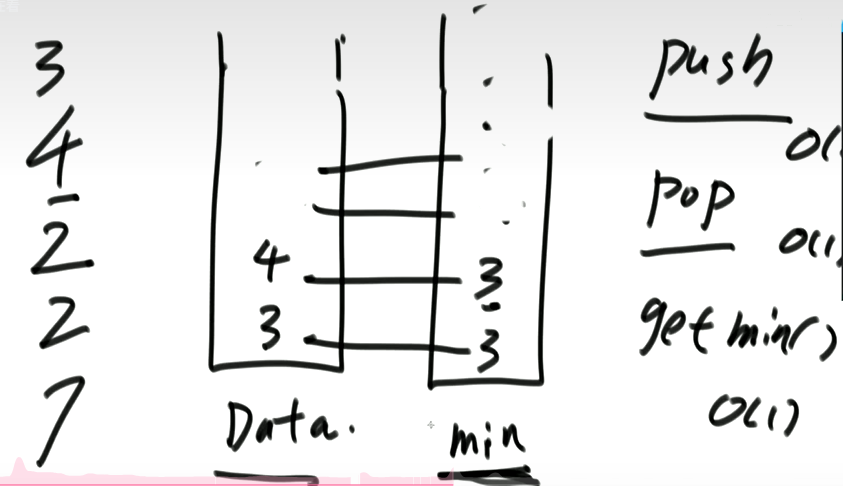 3
4
2
2
7
4
3
Data.
3
3
min
push
O(
pop
O(1
getmin()
O(1)